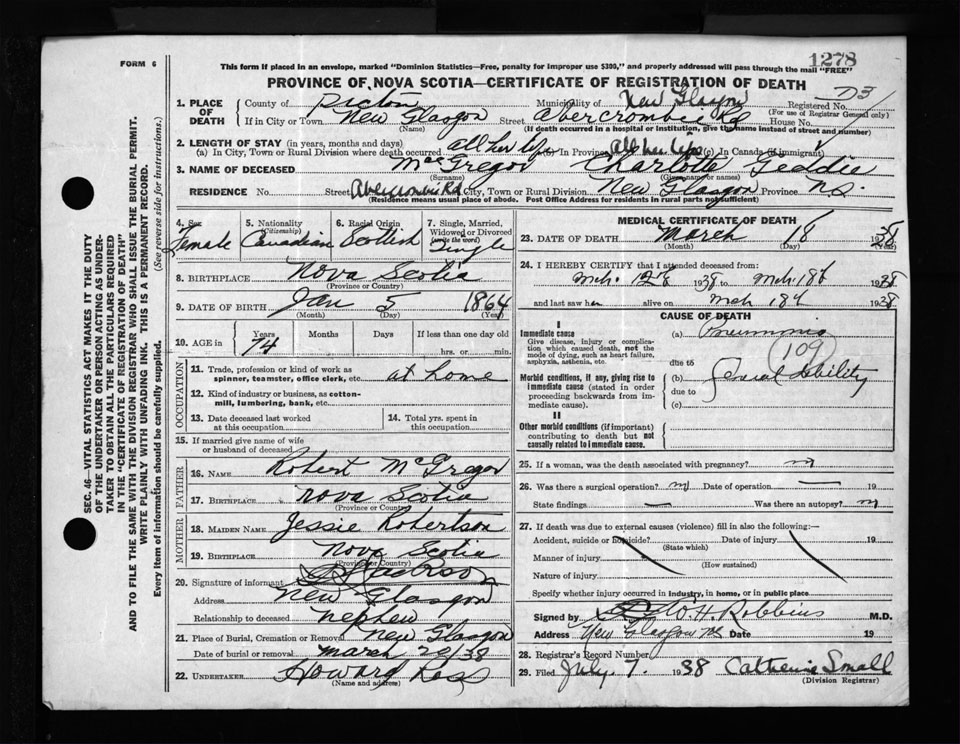 FORM 6
1278
This form if placed in an envelope, marked "Dominion Statistics—Free, penalty for improper use $300," and properly addressed will pass through the mail "FREE"
PROVINCE OF NOVA SCOTIA—CERTIFICATE OF REGISTRATION OF DEATH
1. PLACE OF DEATH County of Pictou Municipality of New Glasgow Registered No. 73
(For use of Registrar General only)
If in City or Town New Glasgow Street Abercrombie Rd House No.
(Name) (If death occurred in a hospital or institution, give the name instead of street and number)
2. LENGTH OF STAY (in years, months and days)
(a) In City, Town or Rural Division where death occurred all her life (b) In Province all her life (c) In Canada (if immigrant)
3. NAME OF DECEASED MacGregor Charlotte Geddie
(Surname) (Given name or names)
RESIDENCE No. Street Abercrombie Rd City, Town or Rural Division New Glasgow Province N.S.
(Residence means usual place of abode. Post Office Address for residents in rural parts not sufficient)
4. Sex Female
5. Nationality (Citizenship) Canadian
6. Racial Origin Scottish
7. Single, Married, Widowed or Divorced (write the word) Single
8. BIRTHPLACE Nova Scotia
(Province or Country)
9. DATE OF BIRTH Jan 5 1864
(Month) (Day) (Year)
10. AGE in Years Months Days If less than one day old
74 hrs. or min.
OCCUPATION
11. Trade, profession or kind of work as spinner, teamster, office clerk, etc. at home
12. Kind of industry or business, as cotton-mill, lumbering, bank, etc.
13. Date deceased last worked at this occupation
14. Total yrs. spent in this occupation
15. If married give name of wife or husband of deceased
FATHER
16. NAME Robert McGregor
17. BIRTHPLACE Nova Scotia
(Province or Country)
MOTHER
18. MAIDEN NAME Jessie Robertson
19. BIRTHPLACE Nova Scotia
(Province or Country)
20. Signature of informant
Address New Glasgow
Relationship to deceased nephew
21. Place of Burial, Cremation or Removal New Glasgow
Date of burial or removal March 20/38
22. UNDERTAKER Howard Ross
(Name and address)
MEDICAL CERTIFICATE OF DEATH
23. DATE OF DEATH March 18 1938
(Month) (Day) (Year)
24. I HEREBY CERTIFY that I attended deceased from:
Mch. 1938 to Mch. 18th 1938
and last saw her alive on Mch 18th 1938
CAUSE OF DEATH
I
Immediate cause (a) Pneumonia
Give disease, injury or complication which caused death, not the mode of dying, such as heart failure, asphyxia, asthenia, etc.
109
due to
Morbid conditions, if any, giving rise to immediate cause (stated in order proceeding backwards from immediate cause).
(b) General debility
due to
(c)
II
Other morbid conditions (if important) contributing to death but not causally related to immediate cause.
25. If a woman, was the death associated with pregnancy? no
26. Was there a surgical operation? no Date of operation — 19
State findings — Was there an autopsy? no
27. If death was due to external causes (violence) fill in also the following:—
Accident, suicide or homicide? Date of injury 19
(State which)
Manner of injury
(How sustained)
Nature of injury
Specify whether injury occurred in industry, in home, or in public place
Signed by W.H. Robbins M.D.
Address New Glasgow NS Date 19
28. Registrar's Record Number
29. Filed July 7. 1938 Catherine Small
(Division Registrar)
SEC. 46—VITAL STATISTICS ACT, MAKES IT THE DUTY
OF THE UNDERTAKER OR PERSON ACTING AS UNDER-
TAKER TO OBTAIN ALL THE PARTICULARS REQUIRED
IN THE "CERTIFICATE OF REGISTRATION OF DEATH"
AND TO FILE THE SAME WITH THE DIVISION REGISTRAR WHO SHALL ISSUE THE BURIAL PERMIT.
WRITE PLAINLY WITH UNFADING INK. THIS IS A PERMANENT RECORD.
Every item of information should be carefully supplied. (See reverse side for instructions.)